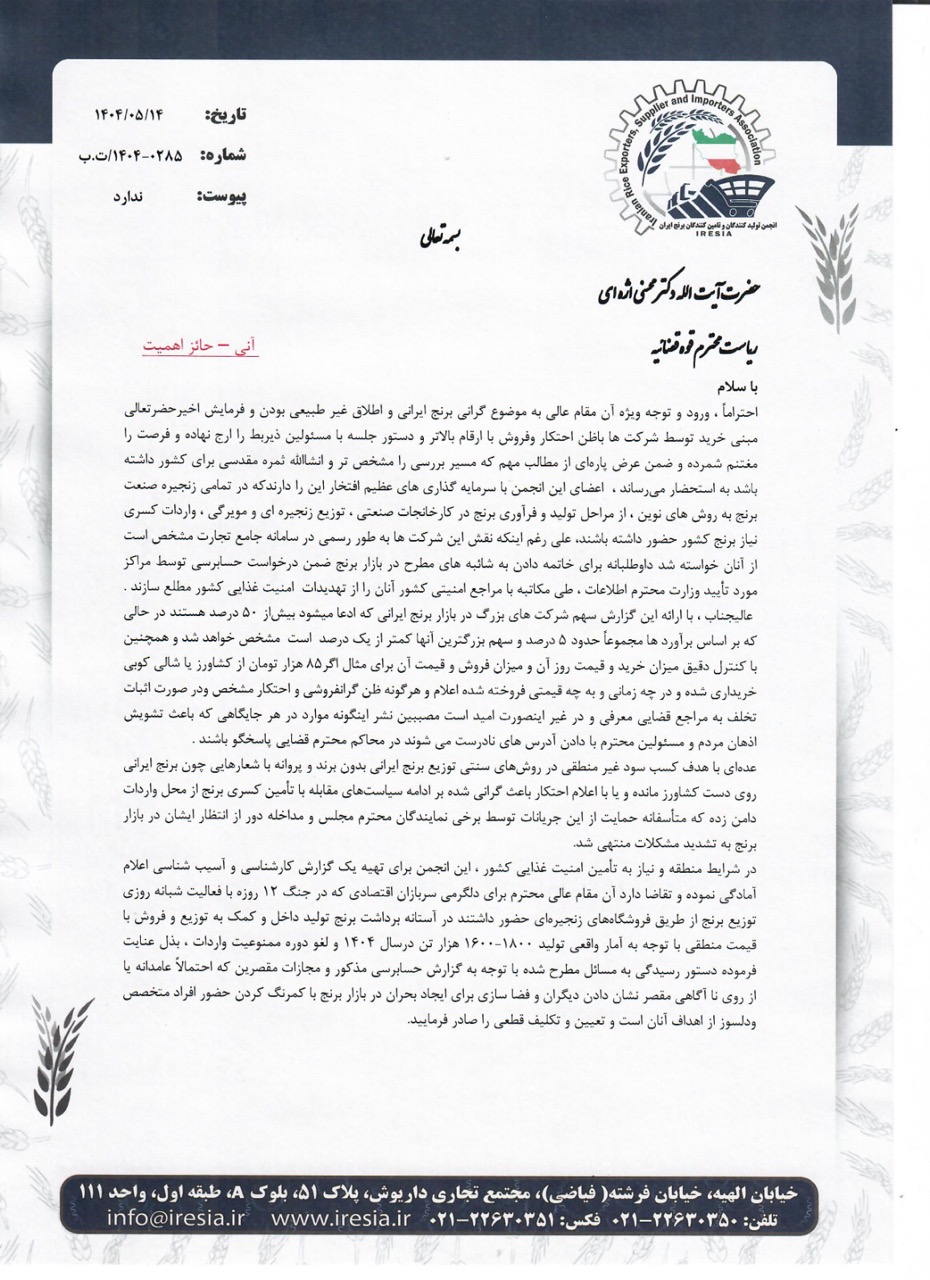 Iranian Rice Exporters, Supplier and Importers Association
انجمن تولید کنندگان و تامین کنندگان برنج ایران
IRESIA
تاریخ: ۱۴۰۴/۰۵/۱۴
شماره: ۱۴۰۴-۰۲۸۵/ت.ب
پیوست: ندارد
بسمه تعالی
حضرت آیت الله دکتر محسنی اژه ای
ریاست محترم قوه قضائیه
آنی – حائز اهمیت
با سلام
احتراماً ، ورود و توجه ویژه آن مقام عالی به موضوع گرانی برنج ایرانی و اطلاق غیر طبیعی بودن و فرمایش اخیرحضرتعالی
مبنی خرید توسط شرکت ها باظن احتکار وفروش با ارقام بالاتر و دستور جلسه با مسئولین ذیربط را ارج نهاده و فرصت را
مغتنم شمرده و ضمن عرض پاره‌ای از مطالب مهم که مسیر بررسی را مشخص تر و انشاالله ثمره مقدسی برای کشور داشته
باشد به استحضار می‌رساند ، اعضای این انجمن با سرمایه گذاری های عظیم افتخار این را دارندکه در تمامی زنجیره صنعت
برنج به روش های نوین ، از مراحل تولید و فرآوری برنج در کارخانجات صنعتی ، توزیع زنجیره ای و مویرگی ، واردات کسری
نیاز برنج کشور حضور داشته باشند، علی رغم اینکه نقش این شرکت ها به طور رسمی در سامانه جامع تجارت مشخص است
از آنان خواسته شد داوطلبانه برای خاتمه دادن به شائبه های مطرح در بازار برنج ضمن درخواست حسابرسی توسط مراکز
مورد تأیید وزارت محترم اطلاعات ، طی مکاتبه با مراجع امنیتی کشور آنان را از تهدیدات امنیت غذایی کشور مطلع سازند .
عالیجناب ، با ارائه این گزارش سهم شرکت های بزرگ در بازار برنج ایرانی که ادعا میشود بیش‌از ۵۰ درصد هستند در حالی
که بر اساس برآورد ها مجموعاً حدود ۵ درصد و سهم بزرگترین آنها کمتر از یک درصد است مشخص خواهد شد و همچنین
با کنترل دقیق میزان خرید و قیمت روز آن و میزان فروش و قیمت آن برای مثال اگر۸۵ هزار تومان از کشاورز یا شالی کوبی
خریداری شده و در چه زمانی و به چه قیمتی فروخته شده اعلام و هرگونه ظن گرانفروشی و احتکار مشخص ودر صورت اثبات
تخلف به مراجع قضایی معرفی و در غیر اینصورت امید است مصببین نشر اینگونه موارد در هر جایگاهی که باعث تشویش
اذهان مردم و مسئولین محترم با دادن آدرس های نادرست می شوند در محاکم محترم قضایی پاسخگو باشند .
عده‌ای با هدف کسب سود غیر منطقی در روش‌های سنتی توزیع برنج ایرانی بدون برند و پروانه با شعارهایی چون برنج ایرانی
روی دست کشاورز مانده و یا با اعلام احتکار باعث گرانی شده بر ادامه سیاست‌های مقابله با تأمین کسری برنج از محل واردات
دامن زده که متأسفانه حمایت از این جریانات توسط برخی نمایندگان محترم مجلس و مداخله دور از انتظار ایشان در بازار
برنج به تشدید مشکلات منتهی شد.
در شرایط منطقه و نیاز به تأمین امنیت غذایی کشور ، این انجمن برای تهیه یک گزارش کارشناسی و آسیب شناسی اعلام
آمادگی نموده و تقاضا دارد آن مقام عالی محترم برای دلگرمی سربازان اقتصادی که در جنگ ۱۲ روزه با فعالیت شبانه روزی
توزیع برنج از طریق فروشگاه‌های زنجیره‌ای حضور داشتند در آستانه برداشت برنج تولید داخل و کمک به توزیع و فروش با
قیمت منطقی با توجه به آمار واقعی تولید ۱۸۰۰-۱۶۰۰ هزار تن درسال ۱۴۰۴ و لغو دوره ممنوعیت واردات ، بذل عنایت
فرموده دستور رسیدگی به مسائل مطرح شده با توجه به گزارش حسابرسی مذکور و مجازات مقصرین که احتمالاً عامدانه یا
از روی نا آگاهی مقصر نشان دادن دیگران و فضا سازی برای ایجاد بحران در بازار برنج با کمرنگ کردن حضور افراد متخصص
ودلسوز از اهداف آنان است و تعیین و تکلیف قطعی را صادر فرمایید.
خیابان الهیه، خیابان فرشته( فیاضی)، مجتمع تجاری داریوش، پلاک ۵۱، بلوک A، طبقه اول، واحد ۱۱۱
تلفن: ۲۲۶۳۰۳۵۰-۰۲۱ فکس: ۲۲۶۳۰۳۵۱-۰۲۱ www.iresia.ir info@iresia.ir